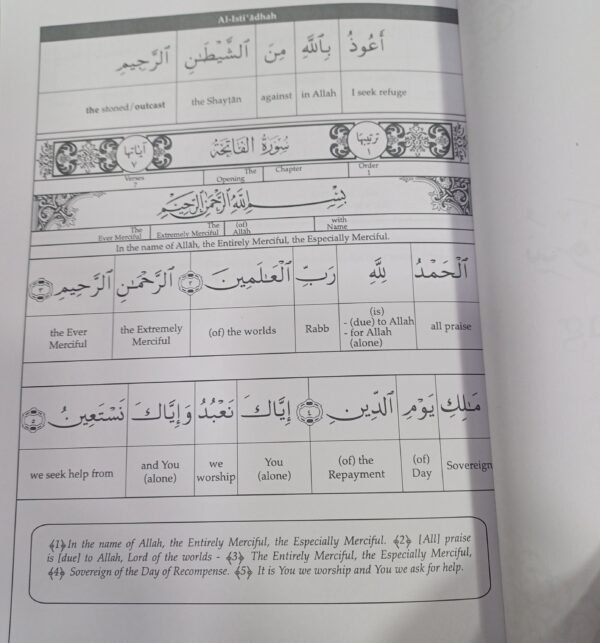 Al-Isti'ādhah
أَعُوذُ بِٱللَّهِ مِنَ ٱلشَّيْطَٰنِ ٱلرَّجِيمِ
the stoned/outcast the Shayṭān against in Allah I seek refuge
آيَاتُهَا ٧ سُورَةُ الفَاتِحَةِ تَرْتِيبُهَا ١
Verses 7 The Opening Chapter Order 1
بِسْمِ ٱللَّهِ ٱلرَّحْمَٰنِ ٱلرَّحِيمِ
The Ever Merciful The Extremely Merciful (of) Allah with Name
In the name of Allah, the Entirely Merciful, the Especially Merciful.
ٱلْحَمْدُ لِلَّهِ رَبِّ ٱلْعَٰلَمِينَ ٢ ٱلرَّحْمَٰنِ ٱلرَّحِيمِ ٣
the Ever Merciful the Extremely Merciful (of) the worlds Rabb (is) - (due) to Allah - for Allah (alone) all praise
مَٰلِكِ يَوْمِ ٱلدِّينِ ٤ إِيَّاكَ نَعْبُدُ وَإِيَّاكَ نَسْتَعِينُ ٥
we seek help from and You (alone) we worship You (alone) (of) the Repayment (of) Day Sovereign
﴾1﴿ In the name of Allah, the Entirely Merciful, the Especially Merciful. ﴾2﴿ [All] praise
is [due] to Allah, Lord of the worlds - ﴾3﴿ The Entirely Merciful, the Especially Merciful,
﴾4﴿ Sovereign of the Day of Recompense. ﴾5﴿ It is You we worship and You we ask for help.